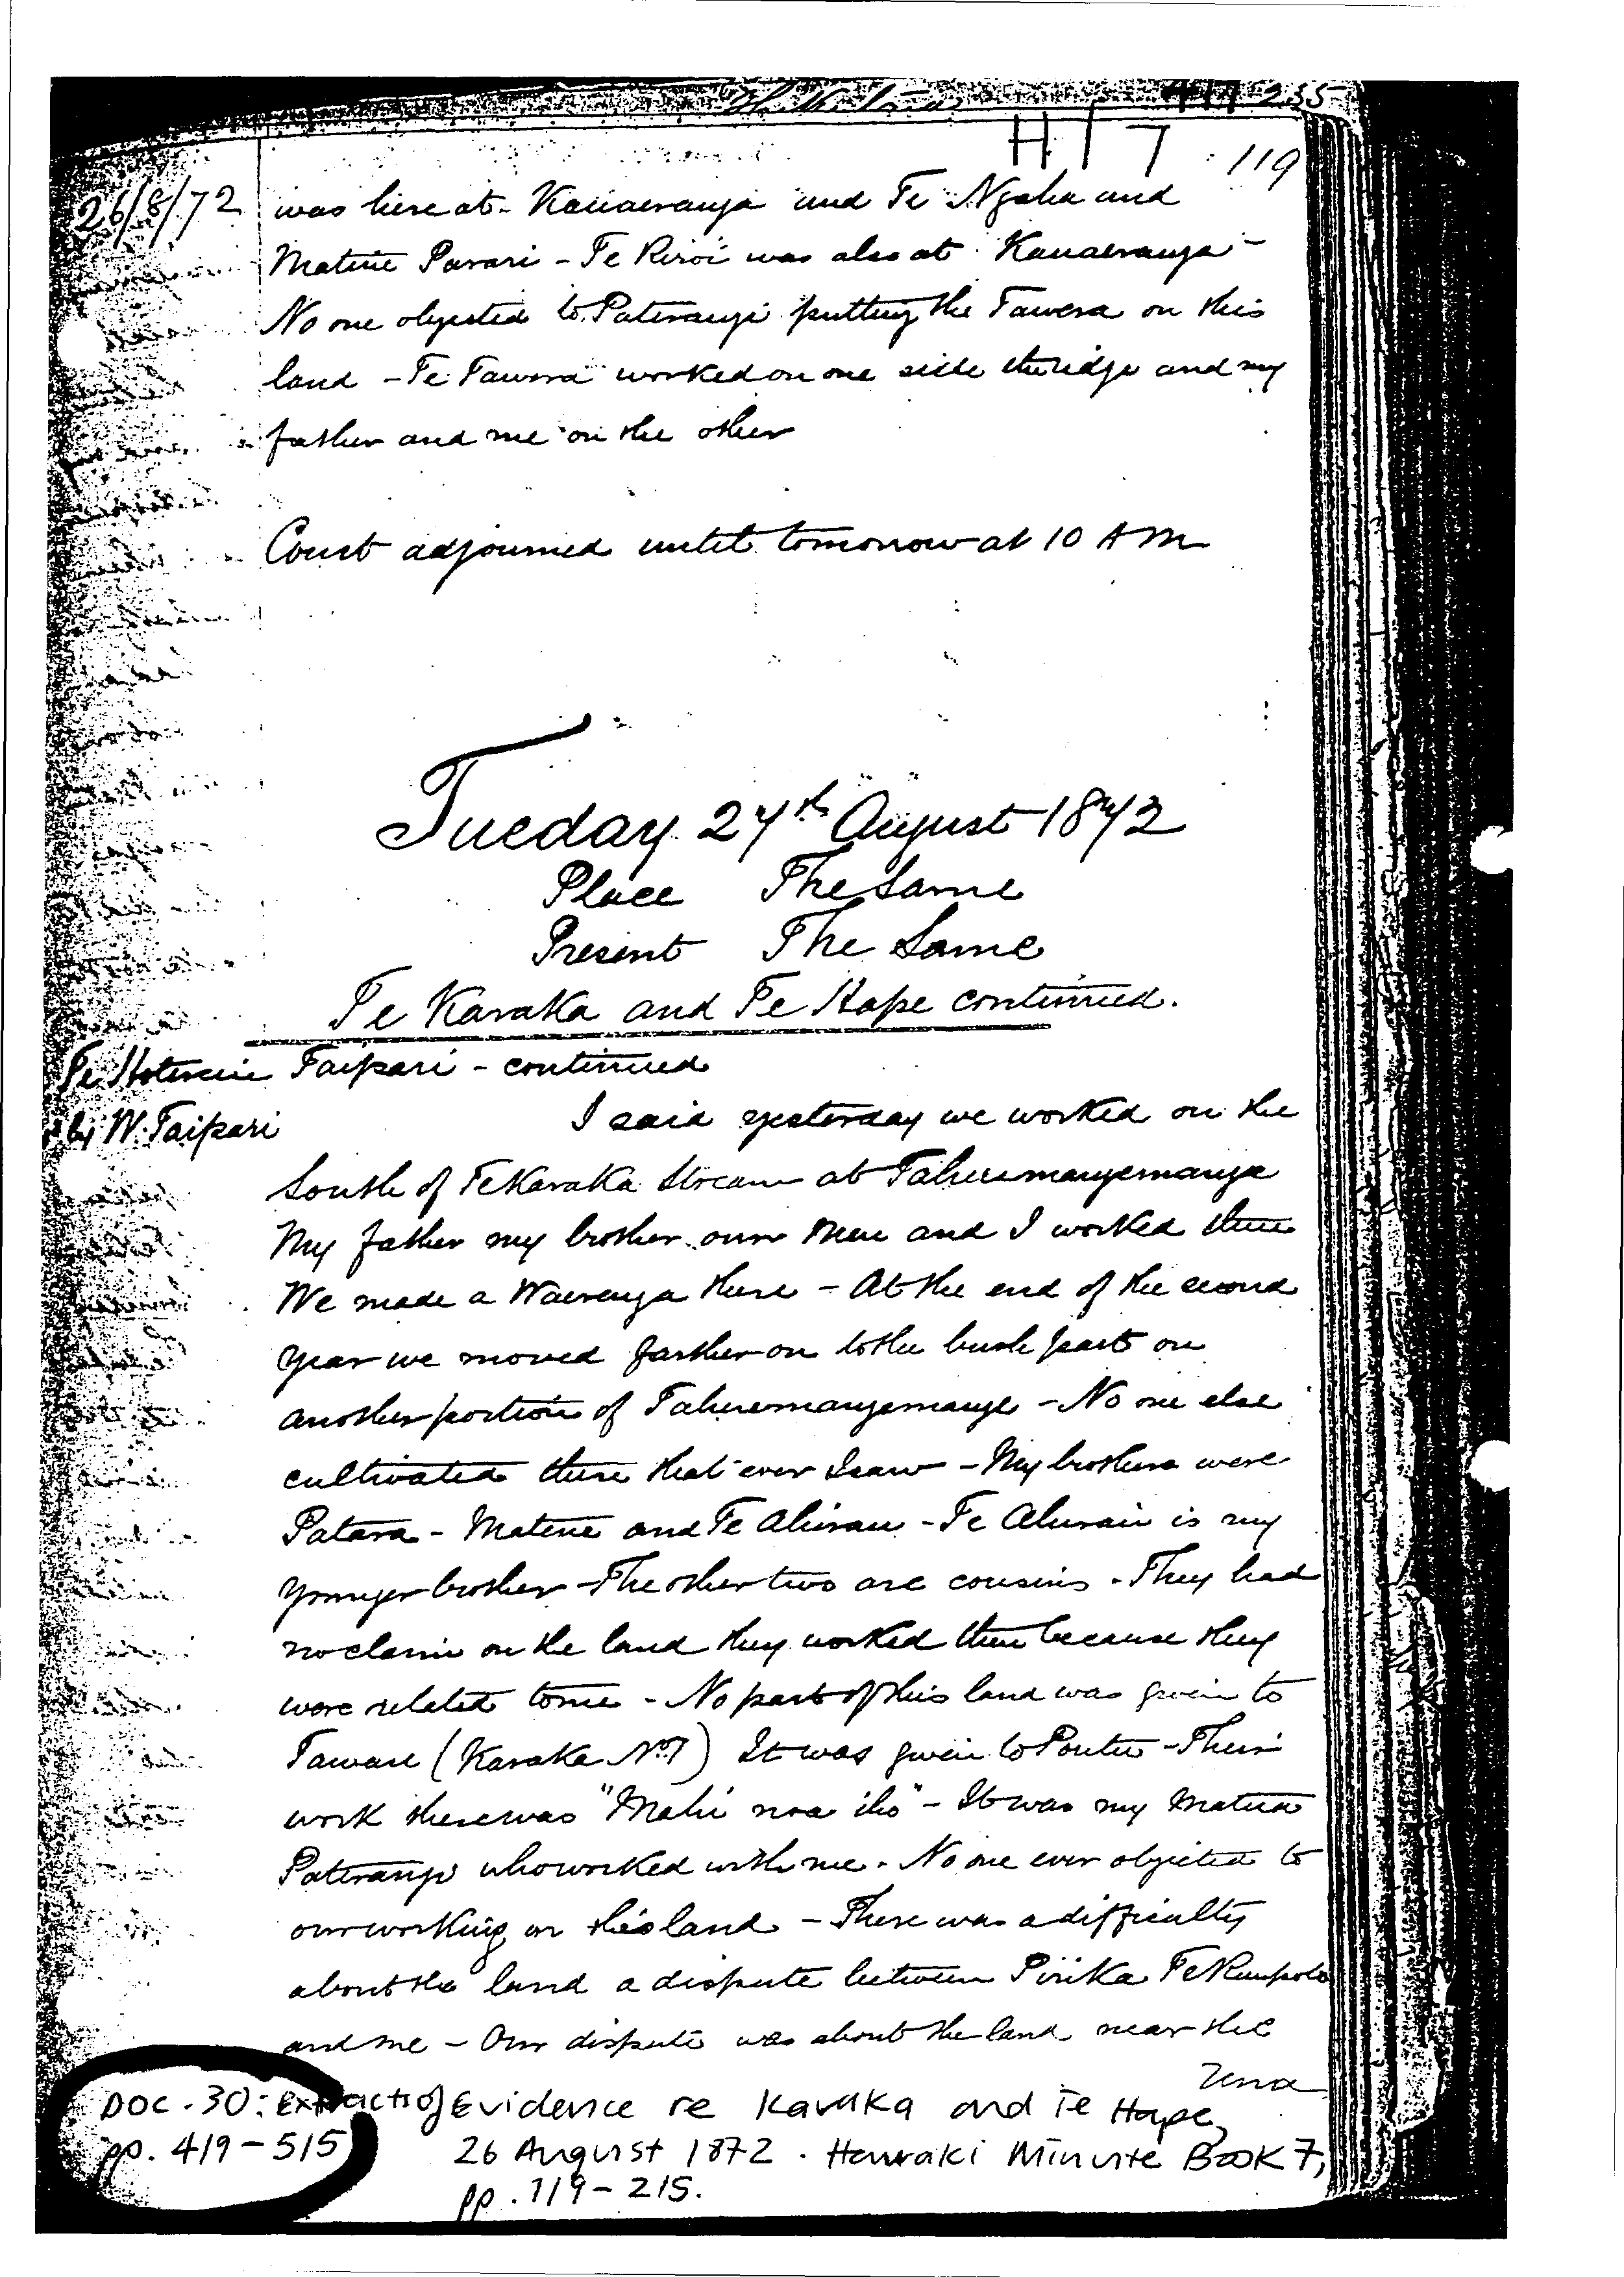 H 7 119
26/8/72
was here at Kauaeranga and Te Ngaha and
Matene Parari - Te Riroi was also at Kauaeranga -
No one objected to Paterangi putting the Tawera on this
land - Te Tawera worked on one side the ridge and my
father and me on the other
Court adjourned until tomorrow at 10 AM
Tueday 27th August 1872
Place The Same
Present The Same
Te Karaka and Te Hape continued.
Te Hotereini Taipari - continued
by W. Taipari
I said yesterday we worked on the
South of Te Karaka Stream at Tahuemangemange
My father my brother our men and I worked there
We made a Waerenga there - At the end of the second
year we moved further on to the bush part on
another portion of Tahuemangemange - No one else
cultivated there that ever I saw - My brothers were
Patara - Matene and Te Ahurau - Te Ahurau is my
younger brother - The other two are cousins - They had
no claim on the land they worked there because they
were related to me - No part of this land was given to
Taware (Karaka No 7) It was given to Poutu - Their
work there was "Mahi noa iho" - It was my Matua
Paterangi who worked with me. No one ever objected to
our working on this land - There was a difficulty
about the land a dispute between Pirika Te
and me - Our dispute was about the land near the
DOC. 30: Extracts of Evidence re Karaka and Te Hape,
pp. 419-515
26 August 1872. Hauraki Minute Book 7,
pp. 119-215.